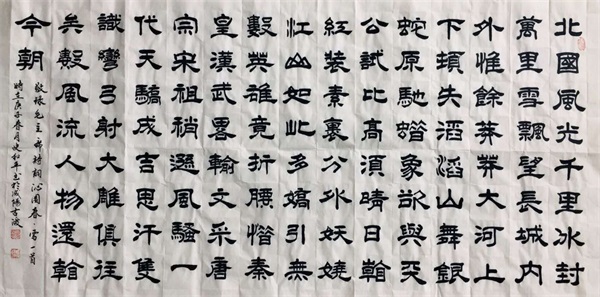 北國風光千里冰封
萬里雪飄望長城內
外惟餘莽莽大河上
下頓失滔滔山舞銀
蛇原馳蠟象欲與天
公試比高須晴日看
紅裝素裹分外妖嬈
江山如此多嬌引無
數英雄竟折腰惜秦
皇漢武畧輸文采唐
宗宋祖稍遜風騷一
代天驕成吉思汗隻
識彎弓射大雕俱往
矣數風流人物還看
今朝
敬錄毛主席詩詞沁園春雪一首
時在庚子春月